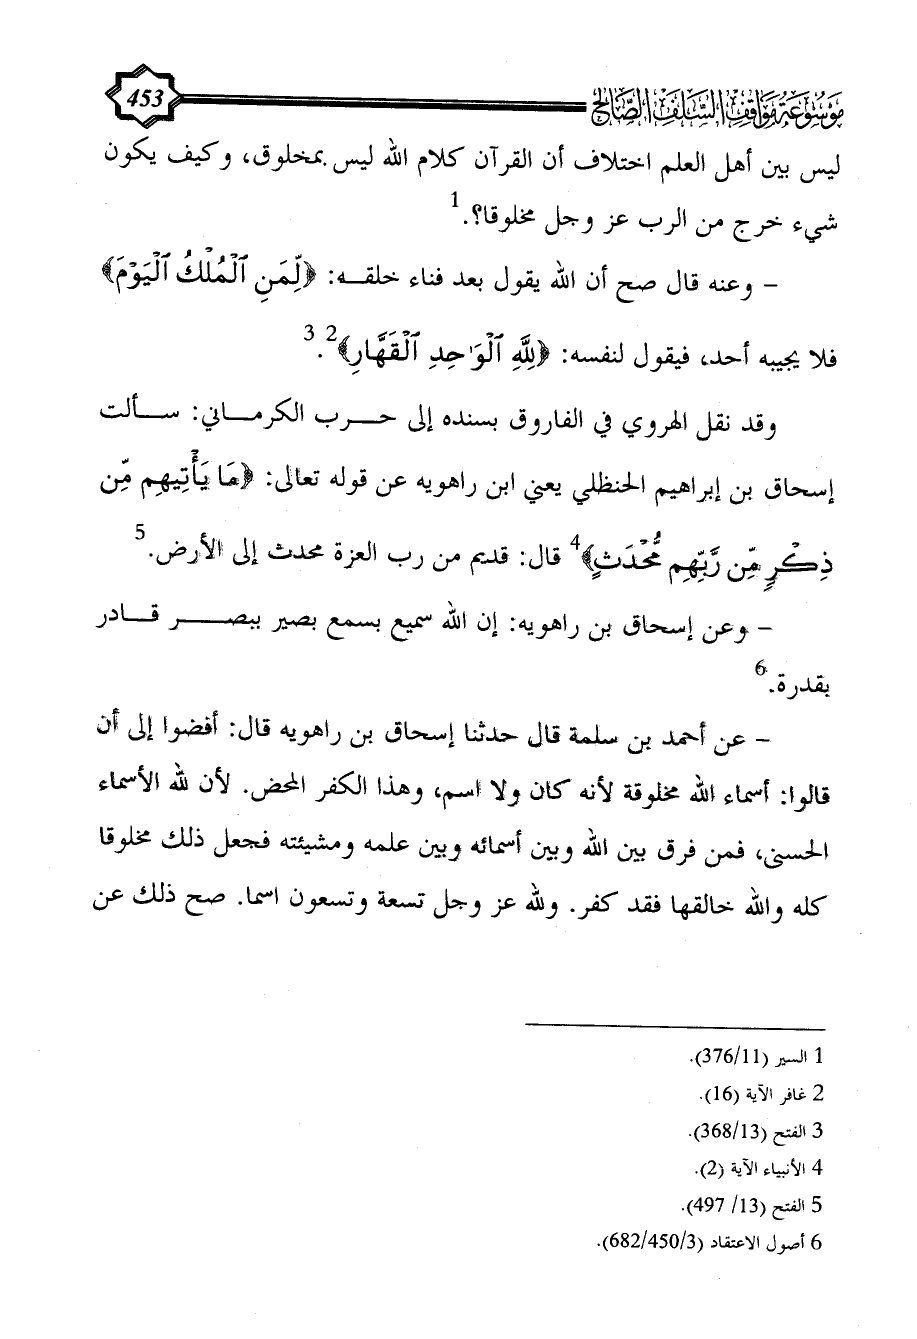 موسوعة مواقف السلف الصالح 453
ليس بين أهل العلم اختلاف أن القرآن كلام الله ليس بمخلوق، وكيف يكون
شيء خرج من الرب عز وجل مخلوقا؟.1
- وعنه قال صح أن الله يقول بعد فناء خلقـه: ﴿لِّمَنِ ٱلْمُلْكُ ٱلْيَوْمَ﴾
فلا يجيبه أحد، فيقول لنفسه: ﴿لِلَّهِ ٱلْوَٰحِدِ ٱلْقَهَّارِ﴾2.3
وقد نقل الهروي في الفاروق بسنده إلى حـرب الكرمـاني: سـألت
إسحاق بن إبراهيم الحنظلي يعني ابن راهويه عن قوله تعالى: ﴿مَا يَأْتِيهِم مِّن
ذِكْرٍ مِّن رَّبِّهِم مُّحْدَثٍ﴾4 قال: قديم من رب العزة محدث إلى الأرض.5
- وعن إسحاق بن راهويه: إن الله سميع بسمع بصير ببصـر قـادر
بقدرة.6
- عن أحمد بن سلمة قال حدثنا إسحاق بن راهويه قال: أفضوا إلى أن
قالوا: أسماء الله مخلوقة لأنه كان ولا اسم، وهذا الكفر المحض. لأن لله الأسماء
الحسنى، فمن فرق بين الله وبين أسمائه وبين علمه ومشيئته فجعل ذلك مخلوقا
كله والله خالقها فقد كفر. ولله عز وجل تسعة وتسعون اسما. صح ذلك عن
1 السير (376/11).
2 غافر الآية (16).
3 الفتح (368/13).
4 الأنبياء الآية (2).
5 الفتح (13/ 497).
6 أصول الاعتقاد (682/450/3).